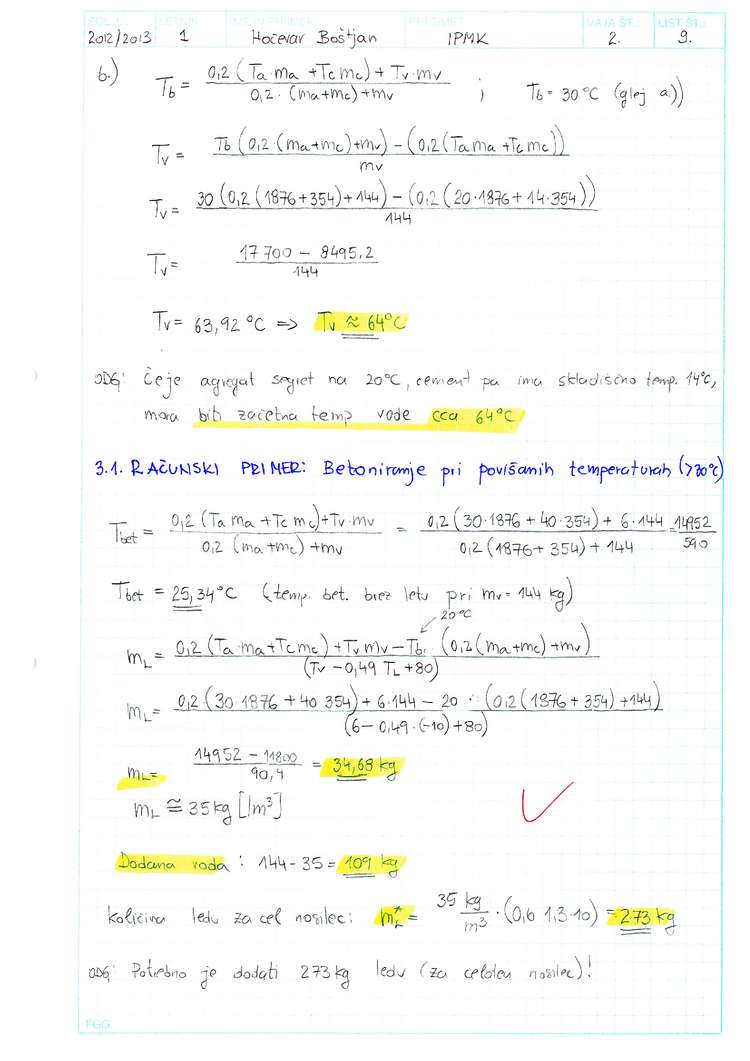 ŠOL. L.: LETNIK IME IN PRIIMEK PREDMET VAJA ŠT.: LIST ŠT.:
2012/2013 1 Hočevar Boštjan IPMK 2. 9.
b.) Tb = 0,2 (Ta·ma + Tc mc) + Tv·mv / 0,2·(ma+mc)+mv ; Tb = 30°C (glej a))
Tv = Tb (0,2·(ma+mc)+mv) – (0,2(Ta ma + Tc mc)) / mv
Tv = 30 (0,2 (1876+354)+144) – (0,2 (20·1876 + 14·354)) / 144
Tv = 17 700 – 8495,2 / 144
Tv = 63,92 °C => Tv ≈ 64°C
ODG: Če je agregat segret na 20°C, cement pa ima skladiščno temp. 14°C,
mora biti začetna temp vode cca. 64°C
3.1. RAČUNSKI PRIMER: Betoniranje pri povišanih temperaturah (>30°C)
Tbet = 0,2 (Ta ma + Tc mc)+Tv·mv / 0,2 (ma+mc)+mv = 0,2 (30·1876 + 40·354) + 6·144 / 0,2 (1876+354)+144 = 14952 / 590
Tbet = 25,34°C (temp. bet. brez ledu pri mv = 144 kg)
20°C
mL = 0,2 (Ta·ma+Tc mc) + Tv mv – Tb· (0,2(ma+mc)+mv) / (Tv – 0,49 TL + 80)
mL = 0,2·(30·1876 + 40·354) + 6·144 – 20 · (0,2 (1876+354)+144) / (6 – 0,49·(-10) + 80)
mL = 14952 – 11800 / 90,4 = 34,68 kg
mL ≅ 35 kg [/m³]
Dodana voda : 144 – 35 = 109 kg
količina ledu za cel nosilec: mL* = 35 kg/m³ · (0,6·1,3·10) = 273 kg
ODG: Potrebno je dodati 273 kg ledu (za celoten nosilec)!
FGG